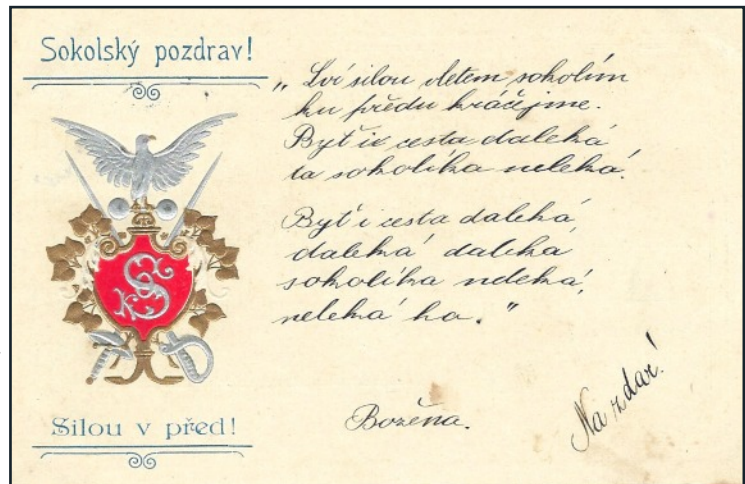 Sokolský pozdrav!
„Lví silou letem sokolím
ku předu kráčejme.
Byť i cesta daleká
ta sokolíka neleká.
Byť i cesta daleká
daleká daleká
sokolíka neleká,
neleká ho."
Na zdar!
Božena.
Silou v před!